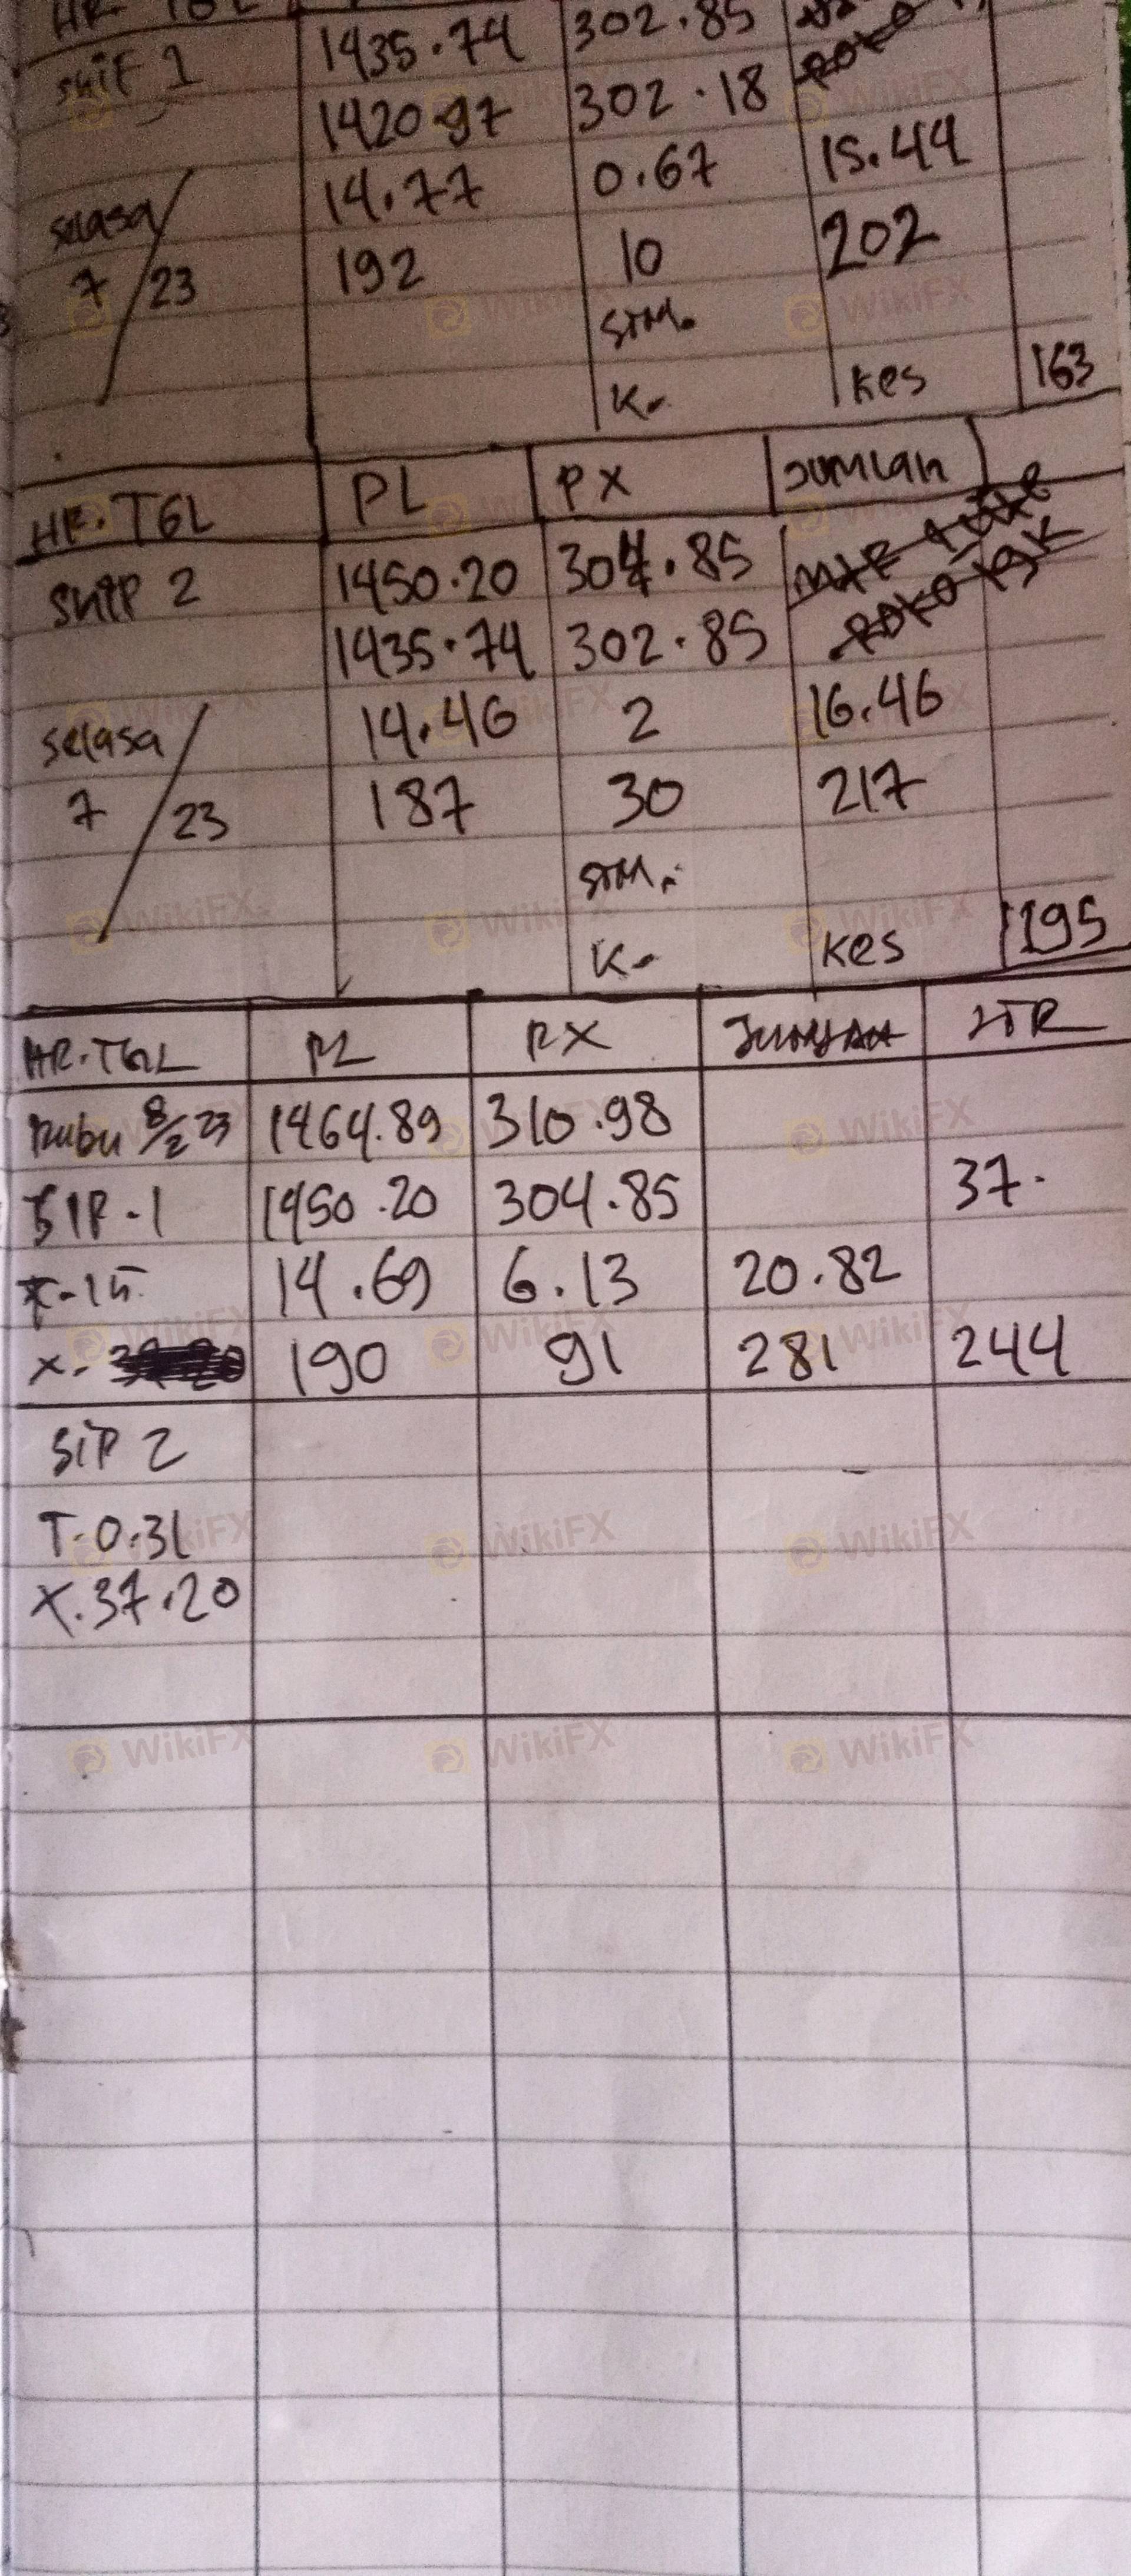 HR TGL
shif 1 1435.74 302.85
1420.97 302.18 ROKO
14.77 0.67 15.44
selasa
7/23 192 10 202
STM.
K. kes 163
HR.TGL PL PX JUMLAH
SHIP 2 1450.20 304.85
1435.74 302.85 ROKO 19K
selasa 14.46 2 16.46
7/23 187 30 217
STM.
K. kes 195
HR.TGL PL PX JUMLAH
Rabu 8/2 23 1464.89 310.98
SIP-1 1450.20 304.85 37.
14.69 6.13 20.82
X. 190 91 281 244
SIP 2
T.0.31
X.37.20